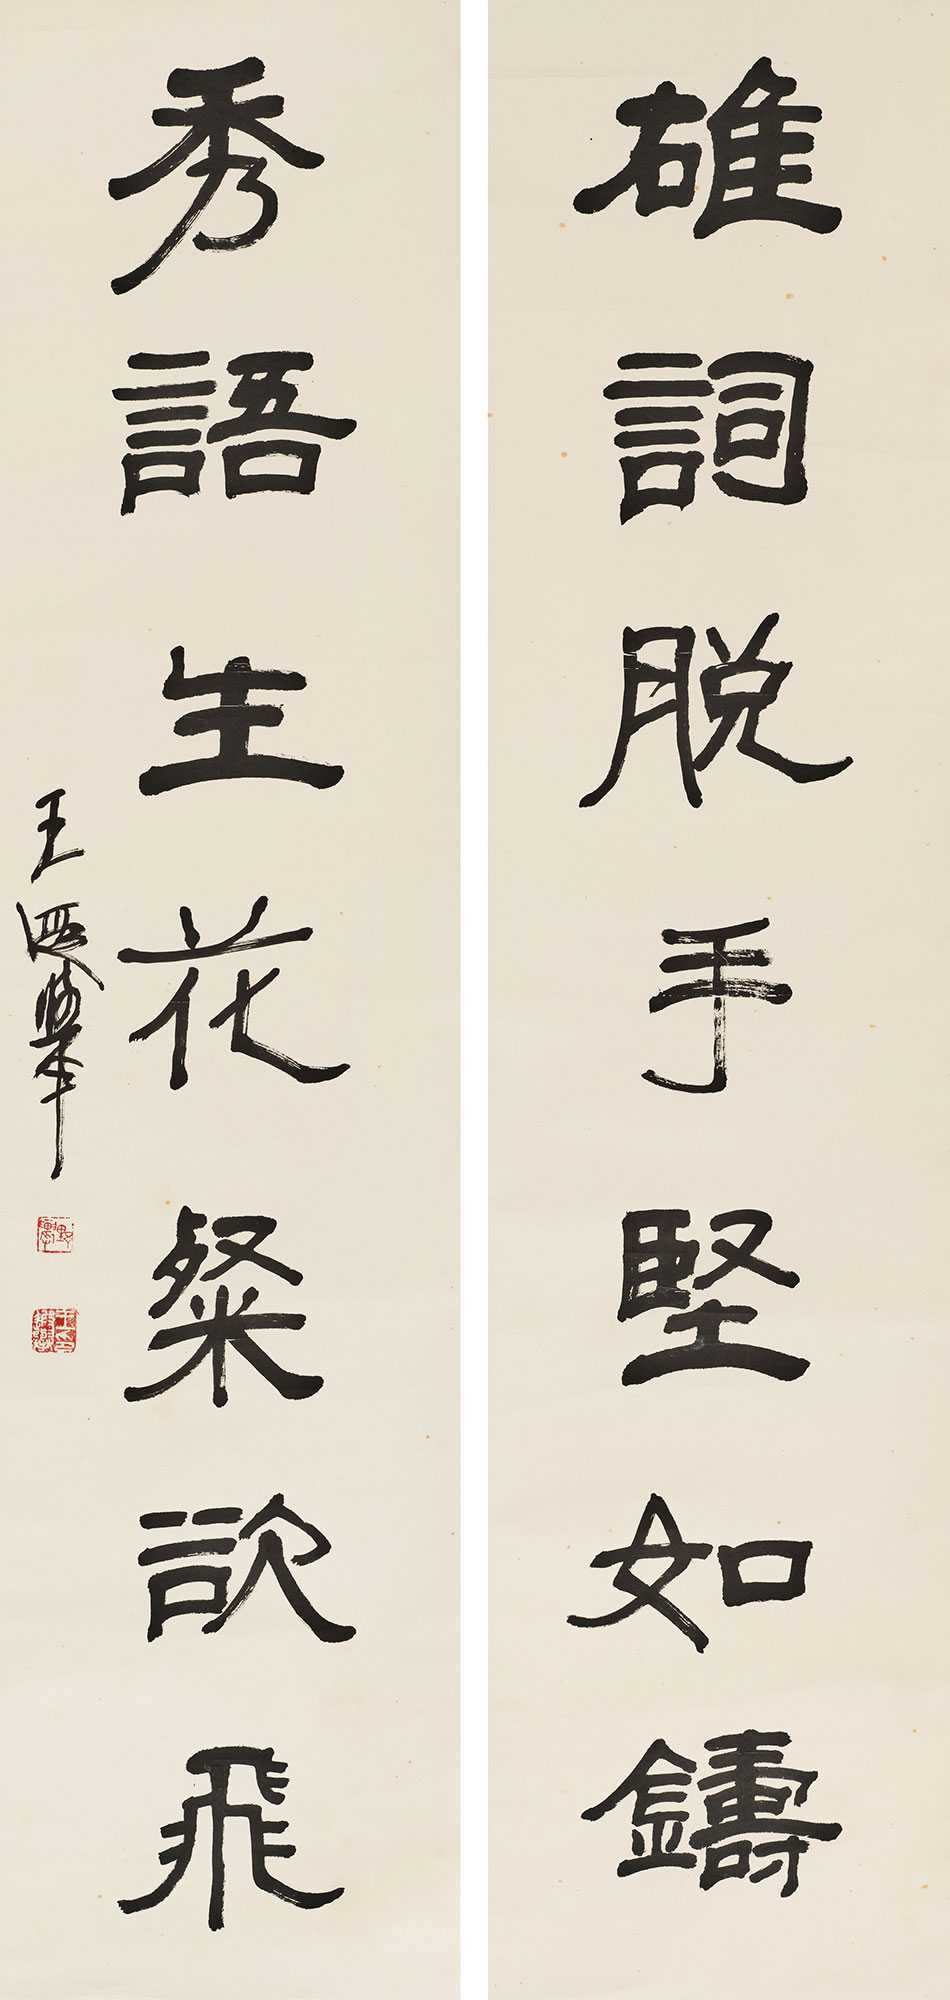 雄詞脫手堅如鑄
秀語生花粲欲飛
王遐舉